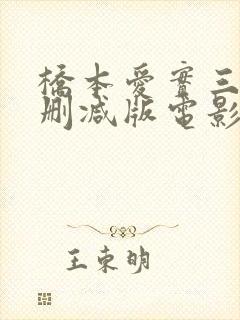 橋本愛實三
删减版電影
王束明